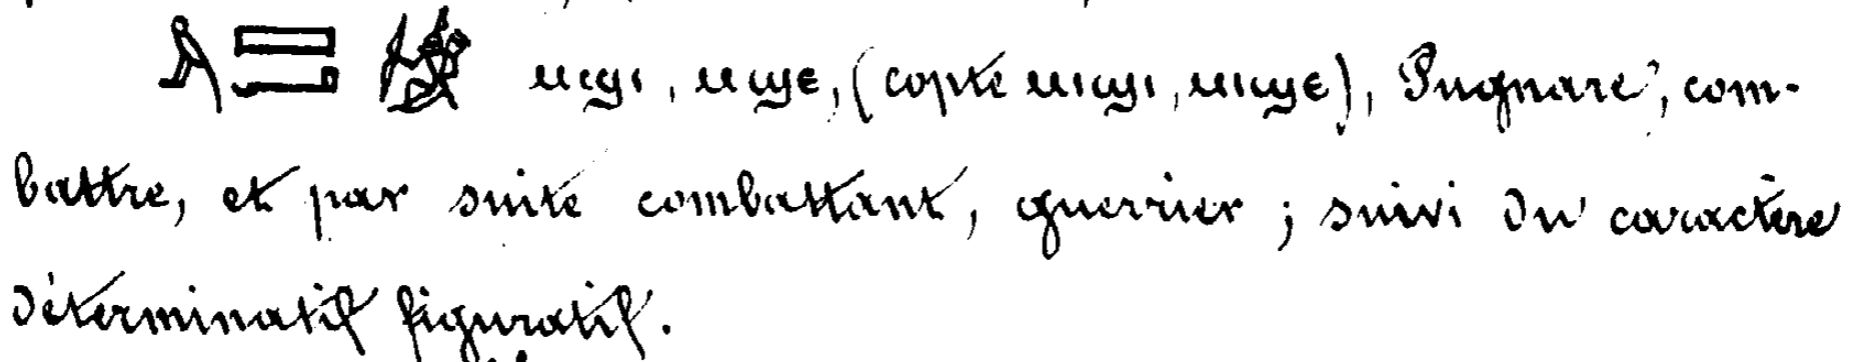 ⲙϣⲓ, ⲙϣⲉ, (copte ⲙⲓϣⲓ, ⲙⲓϣⲉ), Pugnare, com-
battre, et par suite combattant, guerrier ; suivi du caractère
déterminatif figuratif.